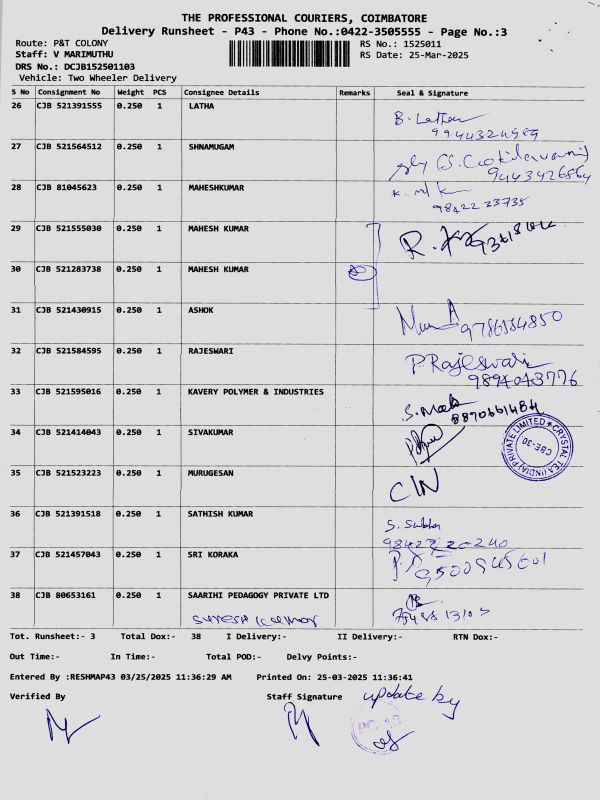 THE PROFESSIONAL COURIERS, COIMBATORE
Delivery Runsheet - P43 - Phone No.:0422-3505555 - Page No.:3
Route: P&T COLONY
RS No.: 1525011
Staff: V MARIMUTHU
RS Date: 25-Mar-2025
DRS No.: DCJB152501103
Vehicle: Two Wheeler Delivery
S No Consignment No Weight PCS Consignee Details Remarks Seal & Signature
26 CJB 521391555 0.250 1 LATHA
B. Latha
9944324989
27 CJB 521564512 0.250 1 SHNAMUGAM
9443426864
28 CJB 81045623 0.250 1 MAHESHKUMAR
9842233735
29 CJB 521555030 0.250 1 MAHESH KUMAR
30 CJB 521283738 0.250 1 MAHESH KUMAR
31 CJB 521430915 0.250 1 ASHOK
9786184850
32 CJB 521584595 0.250 1 RAJESWARI
P. Rajeswari
9894043776
33 CJB 521595016 0.250 1 KAVERY POLYMER & INDUSTRIES
34 CJB 521414043 0.250 1 SIVAKUMAR
CRYSTAL TEA (INDIA) PRIVATE LIMITED
CBE-30
35 CJB 521523223 0.250 1 MURUGESAN
36 CJB 521391518 0.250 1 SATHISH KUMAR
37 CJB 521457043 0.250 1 SRI KORAKA
38 CJB 80653161 0.250 1 SAARIHI PEDAGOGY PRIVATE LTD
Suresh Kumar
Tot. Runsheet:- 3 Total Dox:- 38 I Delivery:- II Delivery:- RTN Dox:-
Out Time:- In Time:- Total POD:- Delvy Points:-
Entered By :RESHMAP43 03/25/2025 11:36:29 AM Printed On: 25-03-2025 11:36:41
Verified By Staff Signature update by